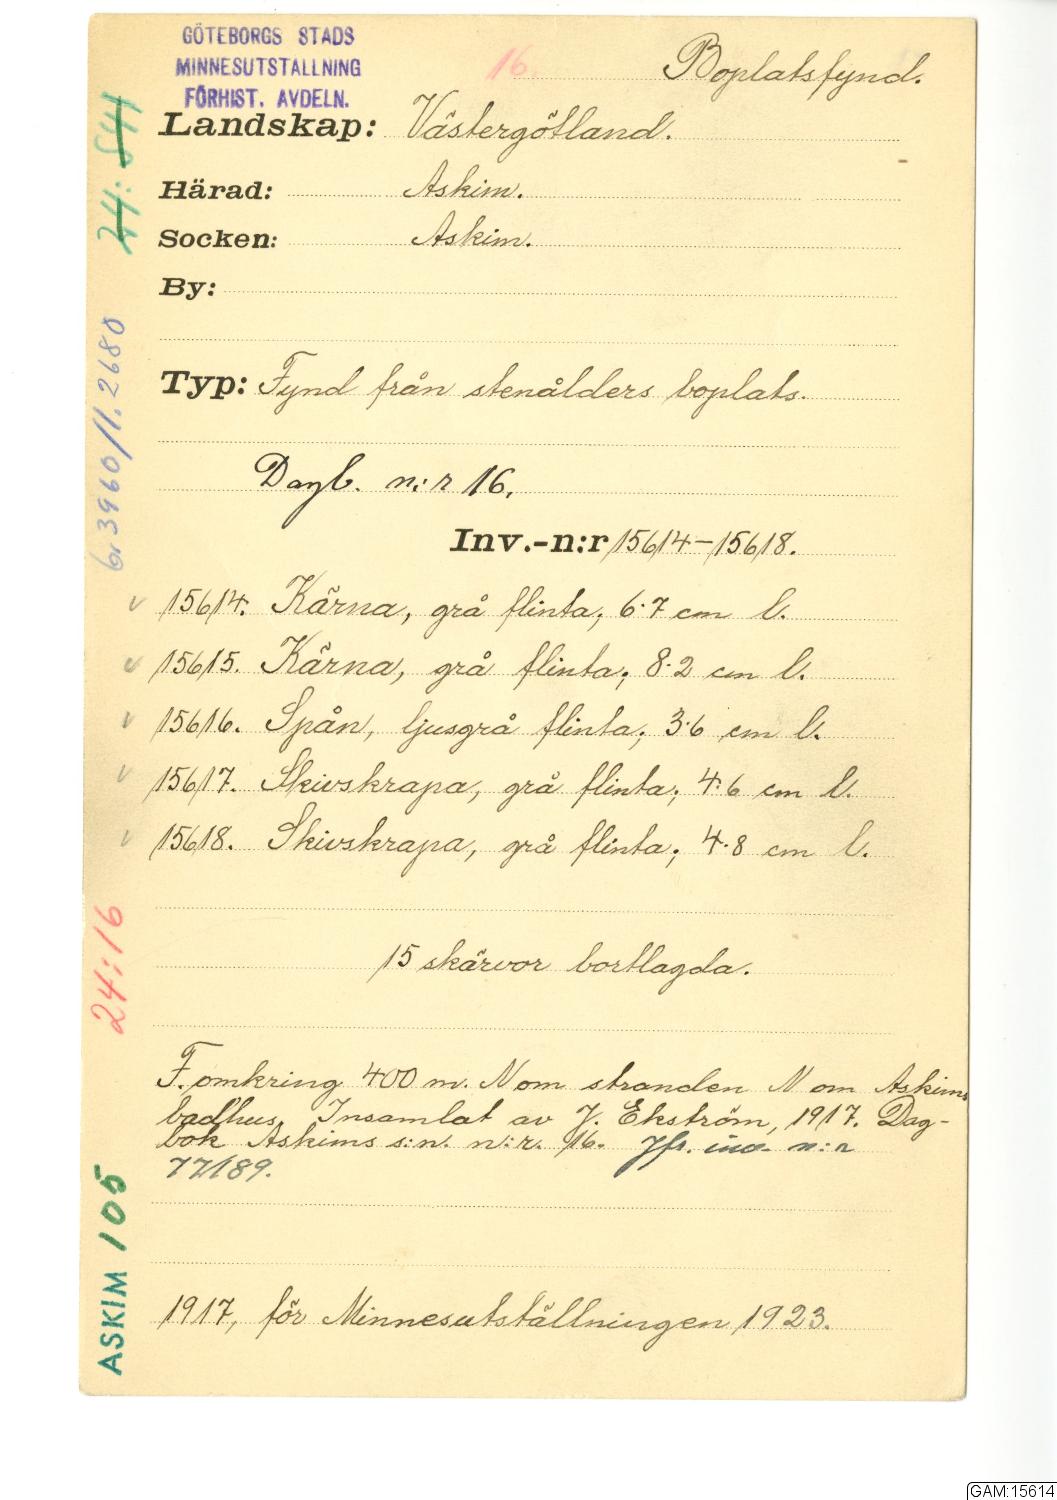 GÖTEBORGS STADS
MINNESUTSTÄLLNING
FÖRHIST. AVDELN.
16.
Boplatsfynd.
Landskap: Västergötland.
Härad: Askim.
Socken: Askim.
By:
Typ: Fynd från stenålders boplats.
Dagb. n:r 16.
Inv.-n:r 15614-15618.
v 15614. Kärna, grå flinta; 6.7 cm l.
v 15615. Kärna, grå flinta; 8.2 cm l.
v 15616. Spån, ljusgrå flinta; 3.6 cm l.
v 15617. Skivskrapa, grå flinta; 4.6 cm l.
v 15618. Skivskrapa, grå flinta; 4.8 cm l.
15 skärvor bortlagda.
F. omkring 400 m. N om stranden N om Askims
badhus. Insamlat av J. Ekström, 1917. Dag-
bok Askims s:n. n:r. 16. Jfr. inv. n:r
77189.
1917, för Minnesutställningen 1923.
24:841
br 3960/1.2680
24:16
ASKIM 105
GAM:15614